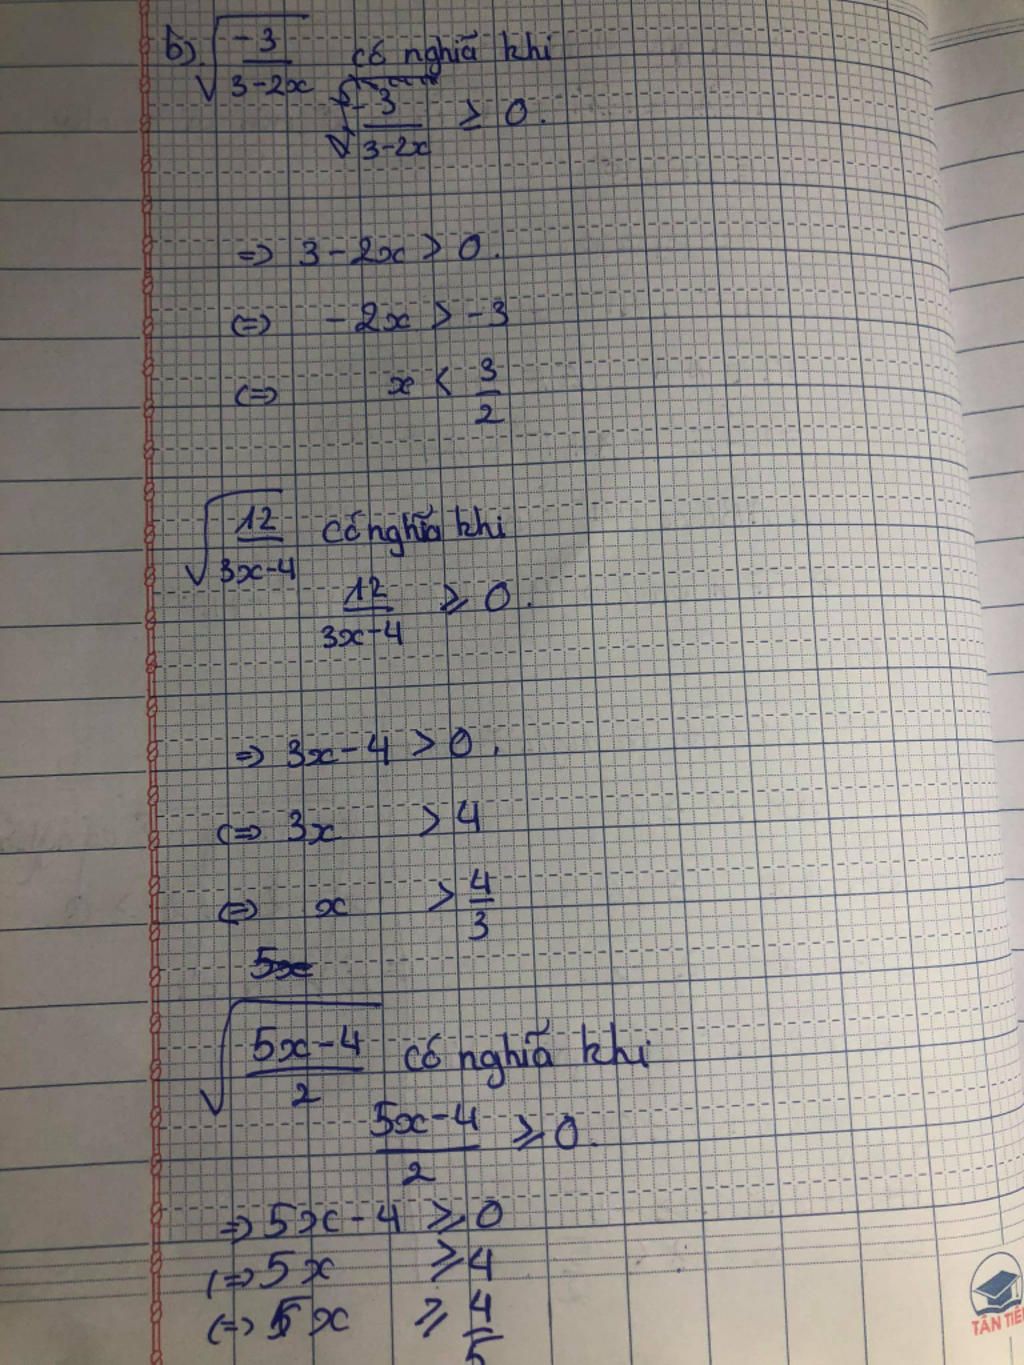 b) √(-3/(3-2x)) có nghĩa khi
-3/(3-2x) ≥ 0.
=> 3-2x > 0.
<=> -2x > -3
<=> x < 3/2
√(12/(3x-4)) có nghĩa khi
12/(3x-4) ≥ 0.
=> 3x-4 > 0.
<=> 3x > 4
<=> x > 4/3
5x
√((5x-4)/2) có nghĩa khi
(5x-4)/2 ≥ 0.
=> 5x-4 ≥ 0
<=> 5x ≥ 4
<=> x ≥ 4/5